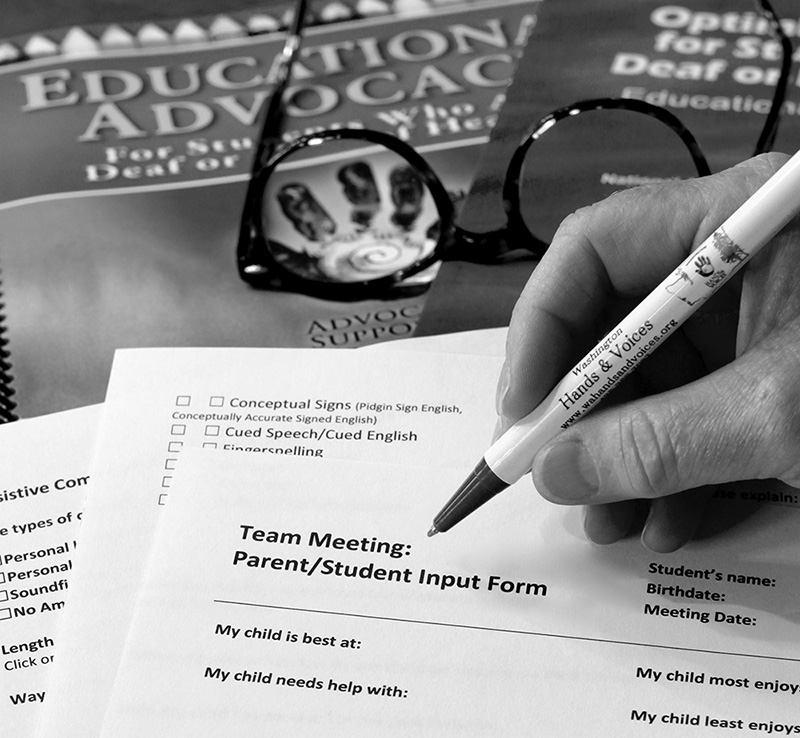 EDUCATIONA
ADVOCAC
For Students Who A
Deaf or
Hea
Optim
for St
Deaf or
Educational
ADVOC
SUPPO
Washington
Hands & Voices
www.wahandsandvoices.org
Conceptual Signs (Pidgin Sign English,
Conceptually Accurate Signed English)
Cued Speech/Cued English
Fingerspelling
sistive Com
e types of c
Personal
Personal
Soundfi
No Am
Length
Click or
Way
se explain:
Team Meeting:
Parent/Student Input Form
Student's name:
Birthdate:
Meeting Date:
My child is best at:
My child needs help with:
My child most enjoys
My child least enjoys